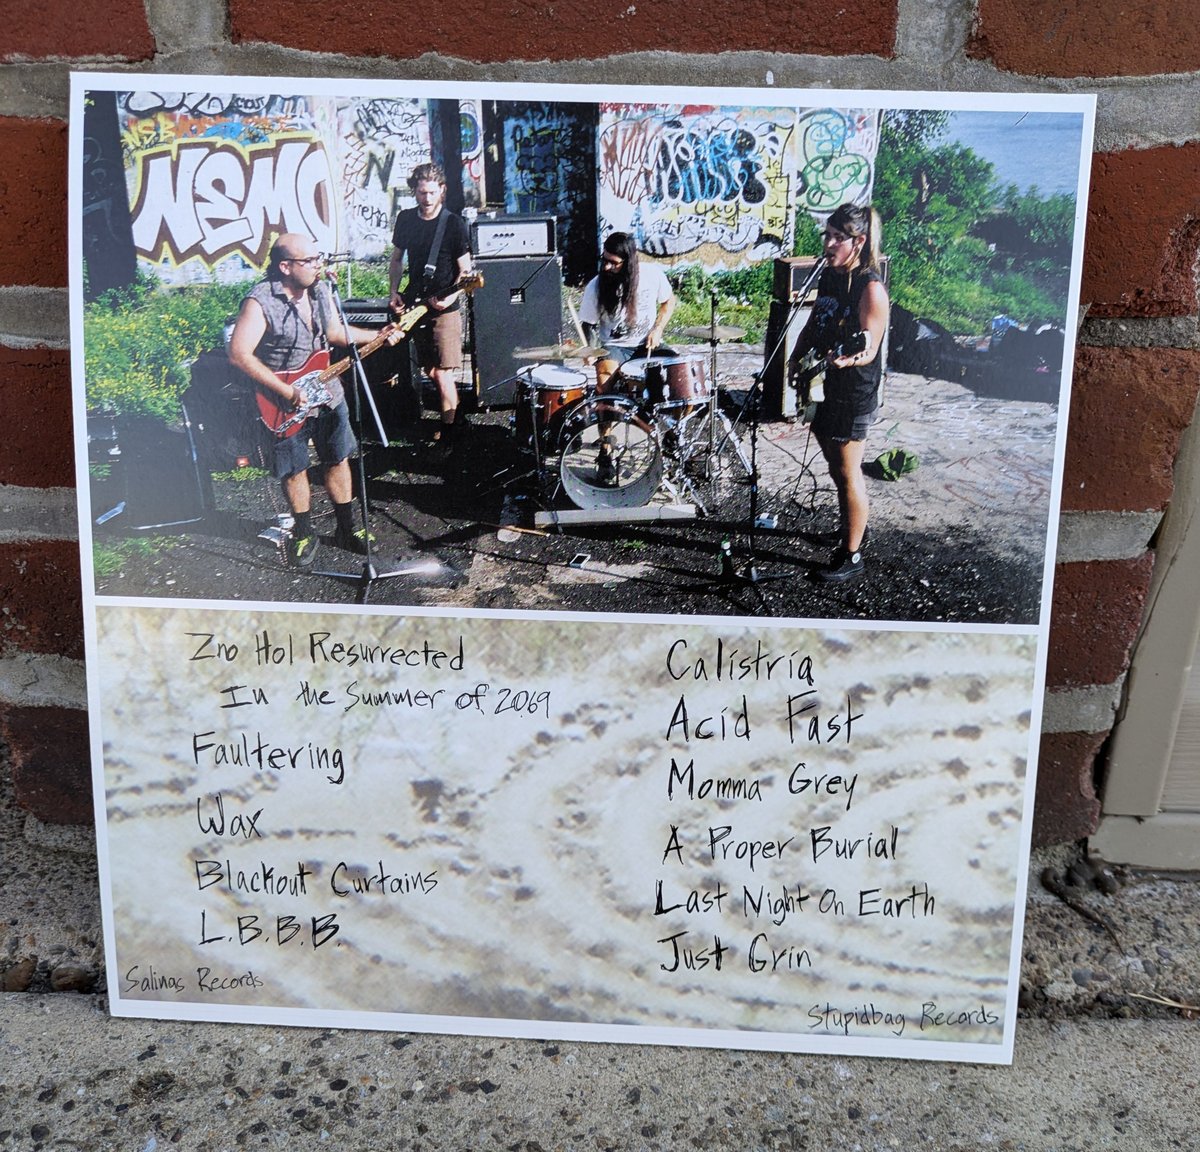 NEMO
Zno Hol Resurrected
In the Summer of 2069
Faultering
Wax
Blackout Curtains
L.B.B.B.
Salinas Records
Calistria
Acid Fast
Momma Grey
A Proper Burial
Last Night On Earth
Just Grin
Stupidbag Records